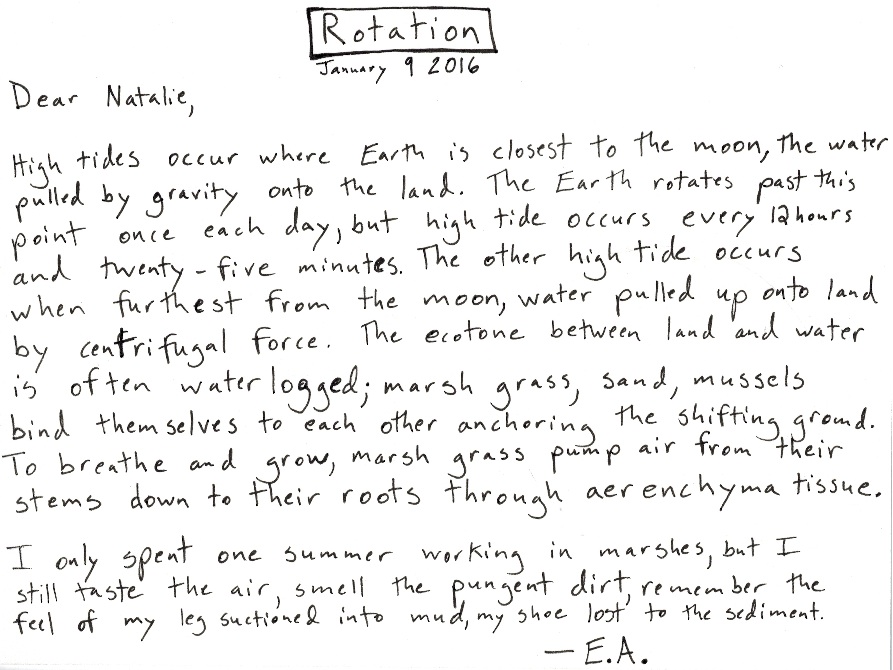 Rotation
January 9 2016
Dear Natalie,
High tides occur where Earth is closest to the moon, the water
pulled by gravity onto the land. The Earth rotates past this
point once each day, but high tide occurs every 12 hours
and twenty-five minutes. The other high tide occurs
when furthest from the moon, water pulled up onto land
by centrifugal force. The ecotone between land and water
is often waterlogged; marsh grass, sand, mussels
bind themselves to each other anchoring the shifting ground.
To breathe and grow, marsh grass pump air from their
stems down to their roots through aerenchyma tissue.
I only spent one summer working in marshes, but I
still taste the air, smell the pungent dirt, remember the
feel of my leg suctioned into mud, my shoe lost to the sediment.
— E.A.